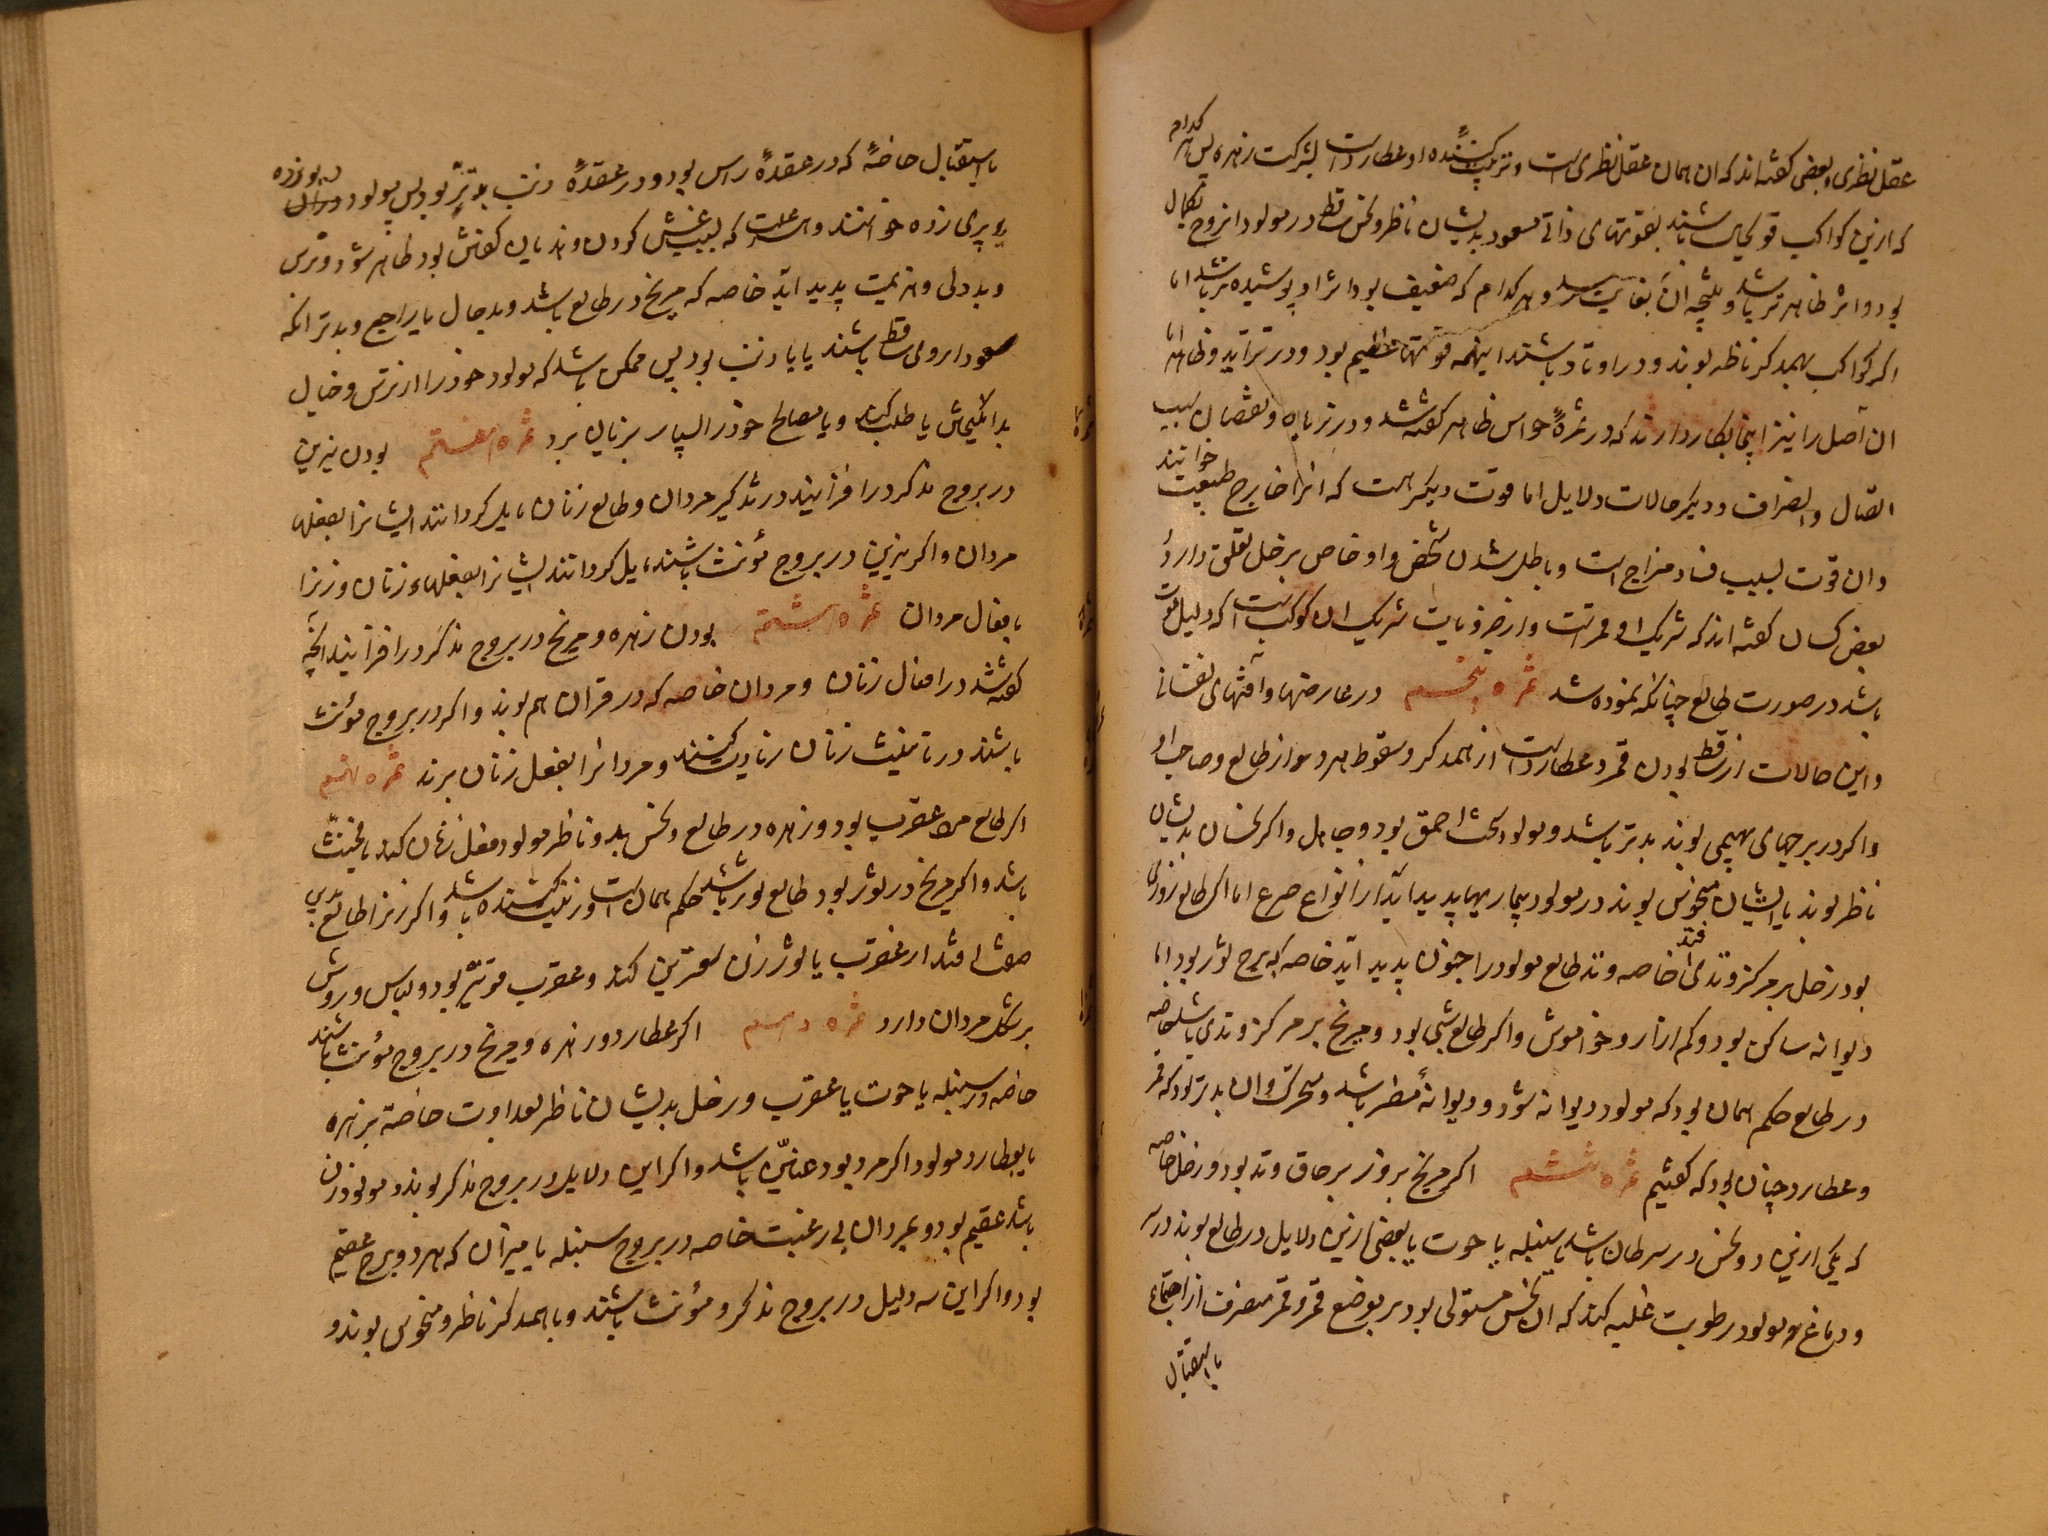 عقل نظری و بعضی کفته‌اند که ان همان عقل نظری است و ترتیب کننده او عطارد است بشرکت زهره پس هر کدام
که ازین کواکب قویحال باشند بقوتهای ذاتی و سعود بدیشان ناظر و نحس ساقط در مولود انروح بکمال
بود و اثر ظاهرتر باشد و نتیجه ان بغایت رسد و هر کدام که ضعیف بود اثر او پوشیده تر باشد اما
اکر کواکب بهمدکر ناظر بوند و در اوتاد باشند اینهمه قوتها عظیم بود و در تزاید و ظاهر اما
ان اصل را نیز اینجا بکار دارند که در ثمرهٔ حواس ظاهر کفته شد و در زیاده و نقصان بسبب
اتصال و انصراف و دیکر حالات دلایل اما قوت دیکر هست که انرا خارج طبیعت خوانند
و ان قوت بسبب فساد مزاج است و باطل شدن شخص و او خاص بزحل تعلق دارد و
بعضی کسان کفته‌اند که شریک او قمر است و از خرد بابت شریک ان کوکب است که دلیل قوت
باشد در صورت طالع چنانکه نموده شد ثمره پنجم در عارضها و آفتهای نفسانی
و این حالات از ساقط بودن قمر و عطارد است از همدکر و سقوط هر دو از طالع و صاحب او
و اکر در برجهای بهیمی بوند بدتر باشد و مولود سخت احمق بود و جاهل و اکر نحسان بدیشان
ناظر بوند یا ایشان منحوس بوند در مولود بیماریها پدید اید از انواع صرع اما اکر طالع روزی
بود زحل بر مرکز وتدی افتد خاصه وتد طالع مولود را جنون پدید اید خاصه که برج ثور بود اما
دیوانه ساکن بود و کم ازار و خواموش و اکر طالع شبی بود و مریخ بر مرکز وتدی باشد خاصه
در طالع حکم همان بود که مولود دیوانه شود و دیوانهٔ مضر باشد و متحرک و ان بدتر بود که قمر
و عطارد چنان بود که کفتیم ثمره ششم اکر مریخ بروز بر حاق وتد بود و زحل خاصه
که یکی ازین دو نحس در سرطان باشد یا سنبله یا حوت یا بعضی ازین دلایل در طالع بوند در سر
و دماغ مولود رطوبت غلبه کند که ان نحس مستولی بود بر موضع قمر و قمر منصرف از اجتماع
یا استقبال
یا استقبال خاصهً که در عقدهٔ راس بود و در عقدهٔ ذنب بدتر بود پس مولود
پری زده خوانند و هر علت که بسبب غش کردن و هذیان کفتن بود ظاهر شود و ترس
و بددلی و هزیمت پدید اید خاصه که مریخ در طالع باشد و بدحال یا راجع و بدتر انکه
سعود از وی ساقط باشند یا با ذنب بود پس ممکن باشد که مولود خود را از ترس و خیال
بد بکشد یا هلاک کند و یا مصالح خود را بسیار بزیان برد ثمره هفتم بودن نیرین
در بروج مذکر درافزایند در تذکیر مردان و طالع زنان مایل کردانند ایشانرا بفعلهاء
مردان و اکر نیرین در بروج مؤنث باشند مایل کردانند ایشانرا بفعلهاء زنان و زنرا
بافعال مردان ثمره هشتم بودن زهره و مریخ در بروج مذکر درافزایند انچه
کفته شد در افعال زنان و مردان خاصه که در قران هم بوند و اکر در بروج مؤنث
باشند در تانیث زنان زیادت کنند و مردانرا بفعل زنان برند ثمره نهم
اکر طالع مرد عقرب بود و زهره در طالع و نحس بدو ناظر مولود فعل زنان کند یا مخنّث
باشد و اکر مریخ در ثور بود و طالع ثور باشد حکم همان است و زینت کننده باشد و اکر زنرا طالع برین
صفت افتد از عقرب یا ثور زن سعتری کند و عقرب قوی‌تر بود و لباس و روش
بر شکل مردان دارد ثمره دهم اکر عطارد و زهره و مریخ در بروج مؤنث باشند
خاصه در سنبله یا حوت یا عقرب و زحل بدیشان ناظر بعداوت خاصة بزهره
یا بعطارد مولود اکر مرد بود عنین باشد و اکر این دلایل در بروج مذکر بوند و مولود زن
باشد عقیم بود و بمردان بی رغبت خاصه در بروج سنبله یا میزان که هر دو برج عقیم
بود و اکر این سه دلیل در بروج مذکر و مؤنث باشند و با همدکر ناظر و منحوس بوند و